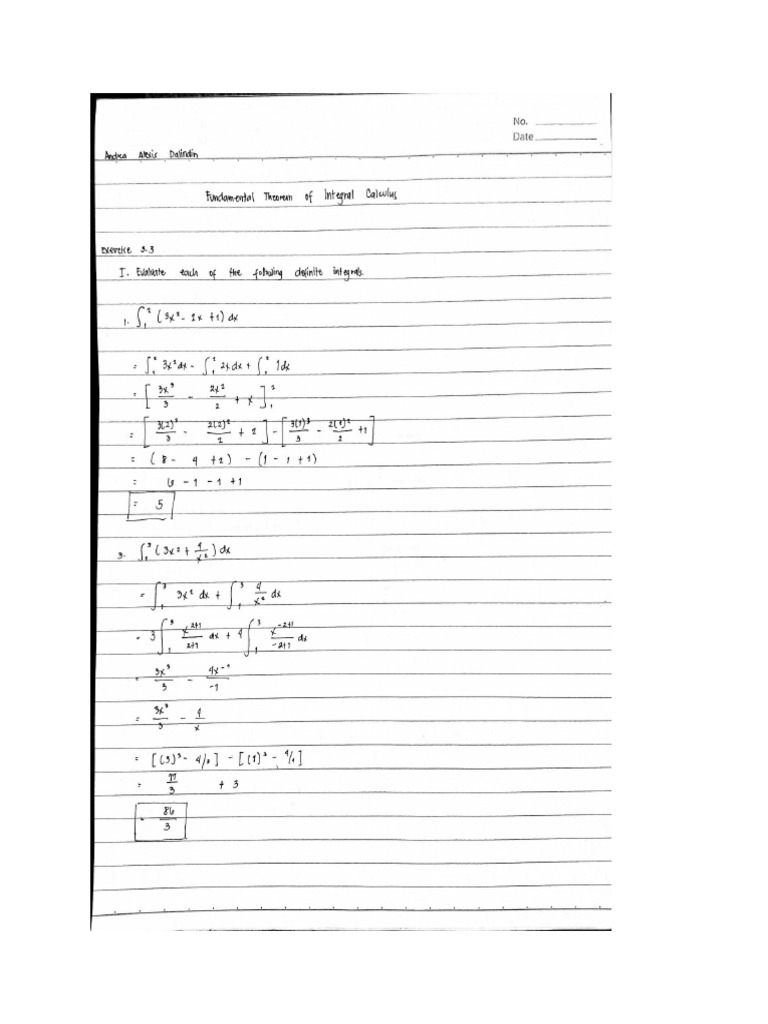 No. ____________
Date ____________
Andrea Alexis Dalindin
Fundamental Theorem of Integral Calculus
Exercise 3.3
I. Evaluate each of the following definite integrals.
1. ∫₁² (3x² - 2x + 1) dx
= ∫₁² 3x² dx - ∫₁² 2x dx + ∫₁² 1 dx
= [ 3x³/3 - 2x²/2 + x ]₁²
= [ 3(2)³/3 - 2(2)²/2 + 2 ] - [ 3(1)³/3 - 2(1)²/2 + 1 ]
= (8 - 4 + 2) - (1 - 1 + 1)
= 6 - 1 - 1 + 1
= 5
3. ∫₁³ (3x² + 4/x²) dx
= ∫₁³ 3x² dx + ∫₁³ 4/x² dx
= 3 ∫₁³ x²⁺¹/2+1 dx + 4 ∫₁³ x⁻²⁺¹/-2+1 dx
= 3x³/3 - 4x⁻¹/-1
= 3x³/3 - 4/x
= [(3)³ - 4/ ] - [(1)³ - 4/ ]
= 77/3 + 3
= 86/3